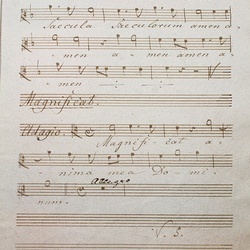 saecula saeculorum amen a
men a men amen a
men
Magnificat.
Adagio.
Magnificat a
nima mea Do mi
num. Allegro
V. S.